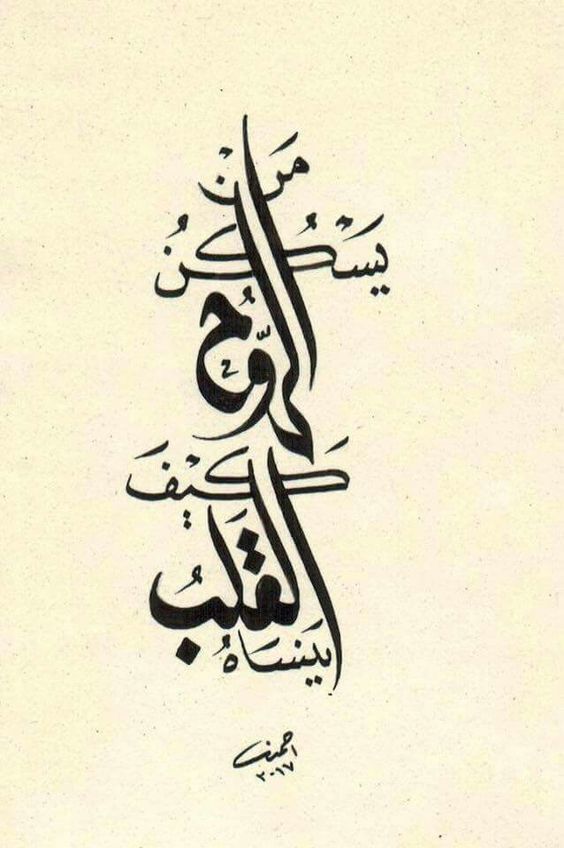 مَنْ
يَسْكُنُ
الرّوحُ
كَيْفَ
القَلبُ
يَنسَاهُ
٢٠١٧